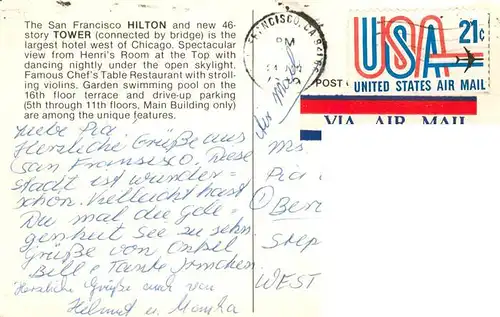 The San Francisco HILTON and new 46-
story TOWER (connected by bridge) is the
largest hotel west of Chicago. Spectacular
view from Henri's Room at the Top with
dancing nightly under the open skylight.
Famous Chef's Table Restaurant with stroll-
ing violins. Garden swimming pool on the
16th floor terrace and drive-up parking
(5th through 11th floors, Main Building only)
are among the unique features.
Liebe Pia
Herzliche Grüße aus
San Fransisco. Diese
Stadt ist wunder-
schön. Vielleicht hast
Du mal die Gele-
genheit See zu sehn
Grüße von Onkel
Bill + Tante Irmchen
Herzliche Grüße auch von
Helmut u. Monika
FRANCISCO, CA
PM
USA 21c
UNITED STATES AIR MAIL
POST
VIA AIR MAIL
Air Mail
Ms.
Pia
1 Ber
Step
WEST